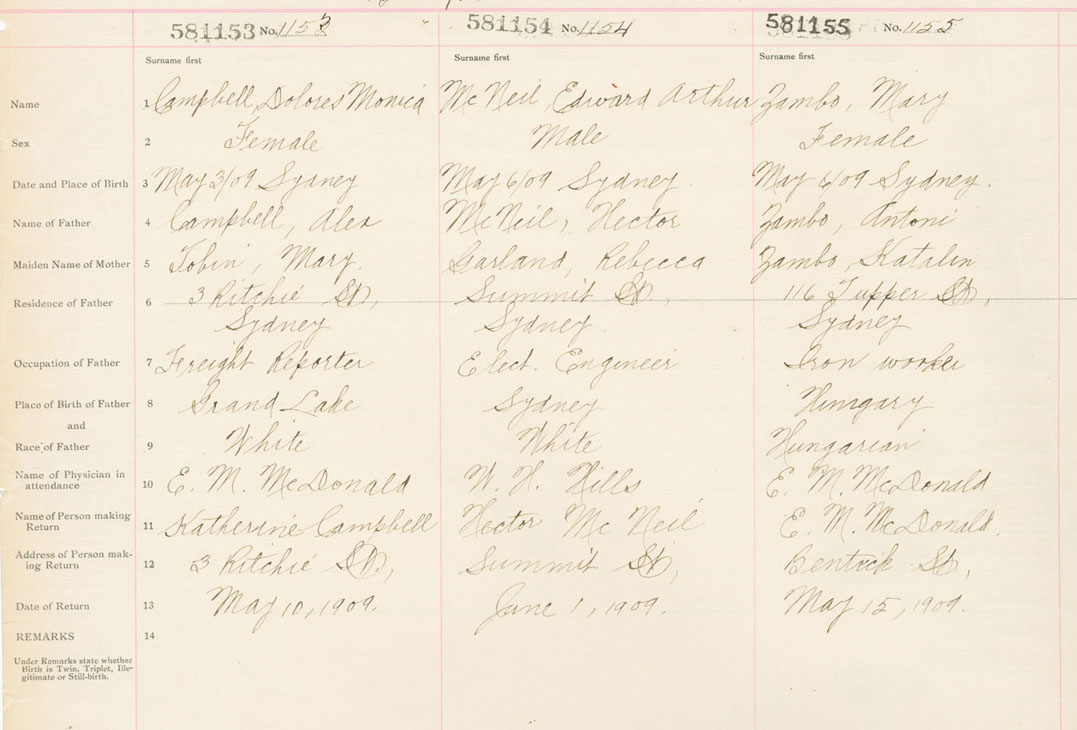 581153 No. 1153 581154 No. 1154 581155 No. 1155
Surname first Surname first Surname first
Name 1 Campbell, Dolores Monica McNeil, Edward Arthur Zambo, Mary
Sex 2 Female Male Female
Date and Place of Birth 3 May 3/09 Sydney May 6/09 Sydney. May 6/09 Sydney.
Name of Father 4 Campbell, Alex McNeil, Hector Zambo, Antoni
Maiden Name of Mother 5 Tobin, Mary. Garland, Rebecca Zambo, Katalin
Residence of Father 6 3 Ritchie St, Summit St, 116 Tupper St,
Sydney Sydney. Sydney
Occupation of Father 7 Freight Reporter Elect. Engineer Iron worker
Place of Birth of Father 8 Grand Lake Sydney Hungary
and
Race of Father 9 White White Hungarian
Name of Physician in
attendance 10 E. M. McDonald W. H. Hills E. M. McDonald
Name of Person making
Return 11 Katherine Campbell Hector McNeil E. M. McDonald.
Address of Person mak-
ing Return 12 3 Ritchie St., Summit St, Bentick St,
Date of Return 13 May 10, 1909. June 1, 1909. May 15, 1909.
REMARKS 14
Under Remarks state whether
Birth is Twin, Triplet, Ille-
gitimate or Still-birth.